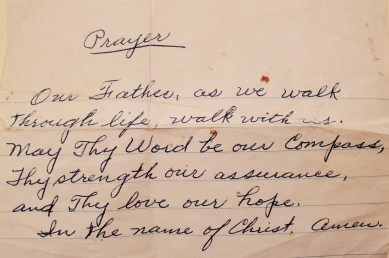 Prayer
Our Father, as we walk
through life, walk with us.
May Thy Word be our Compass,
Thy strength our assurance,
and Thy love our hope.
In the name of Christ. Amen.